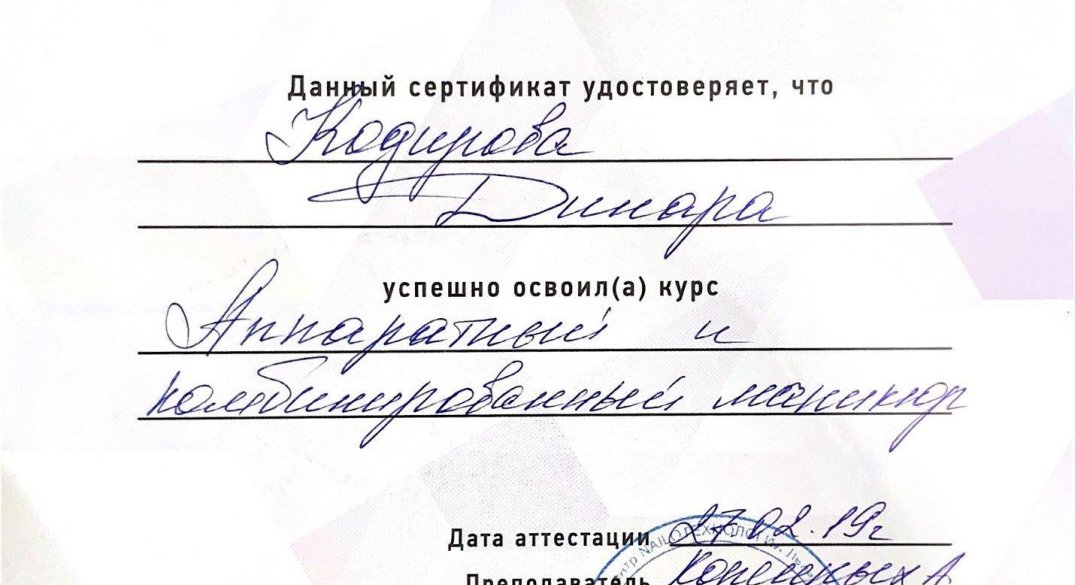 Данный сертификат удостоверяет, что
Кодирова
Динара
успешно освоил(а) курс
Аппаратный и
комбинированный маникюр
Дата аттестации 27.02.19г
Преподаватель